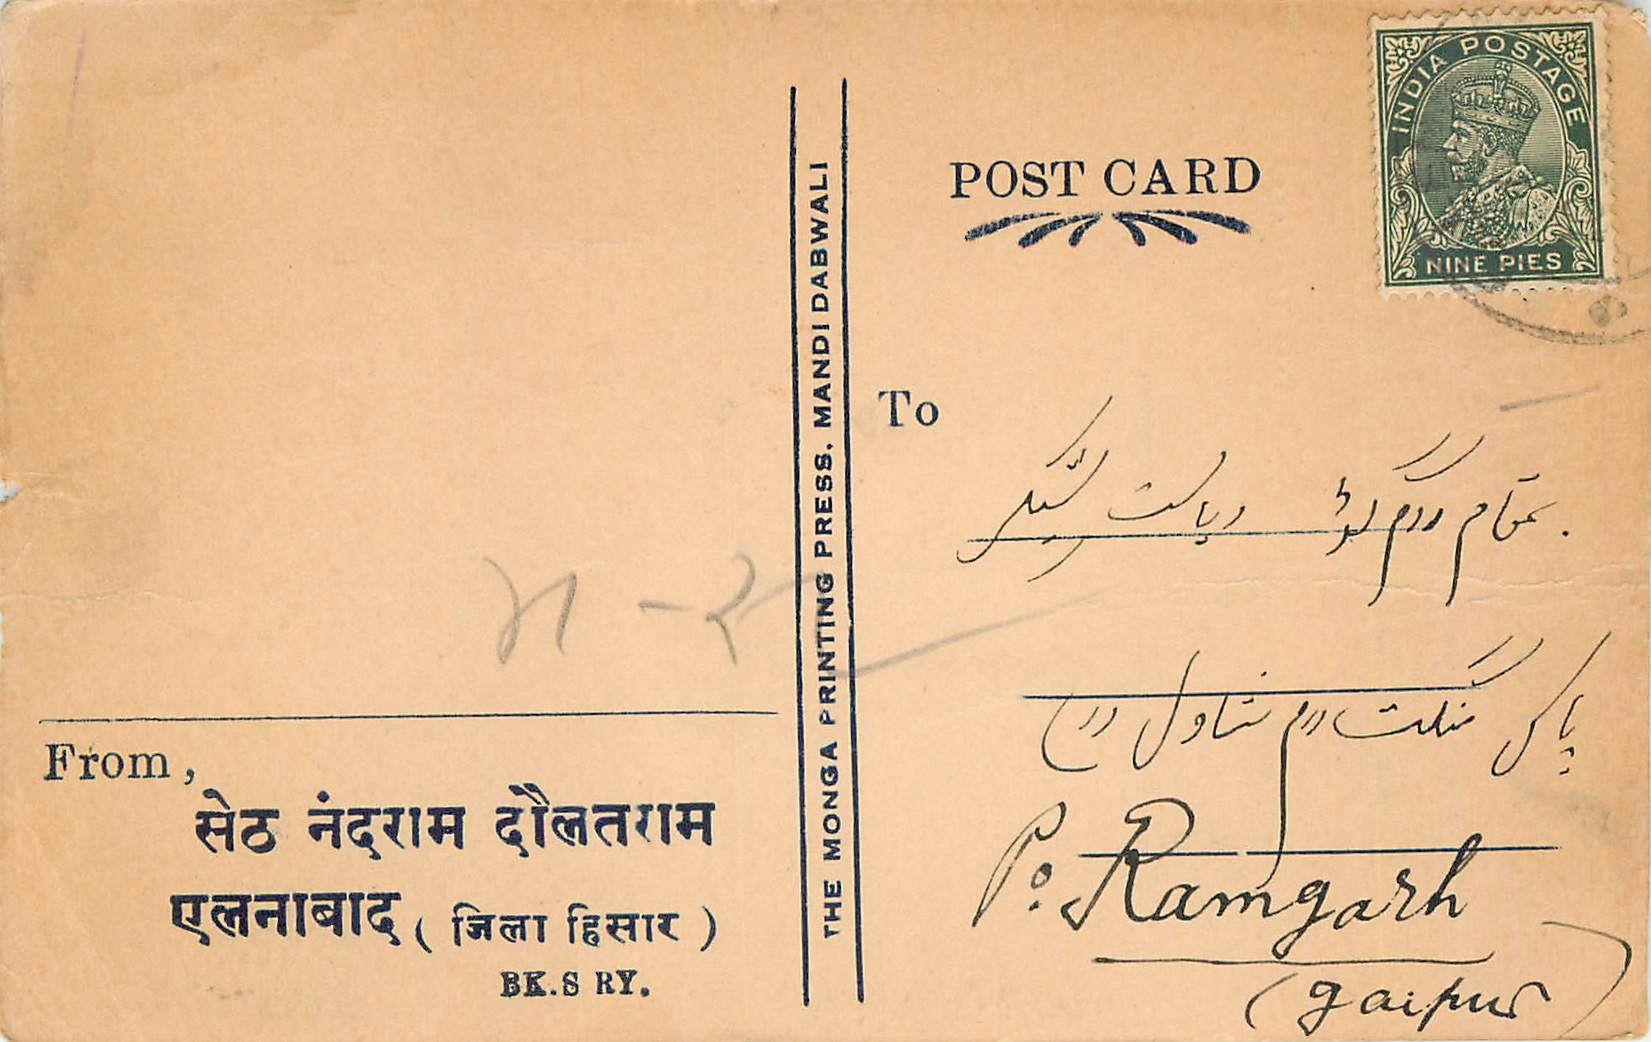 INDIA POSTAGE
NINE PIES
POST CARD
THE MONGA PRINTING PRESS. MANDI DABWALI
To
بمقام رام گڑھ ریاست سیکر
پاس
P.o. Ramgarh
(Jaipur)
From,
सेठ नंदराम दौलतराम
एलनाबाद ( जिला हिसार )
BK.S RY.